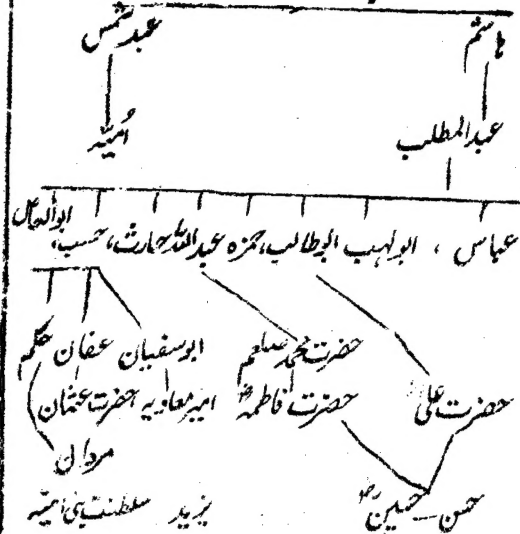 ہاشم عبد شمس
عبدالمطلب اُمیّہ
عباس ، ابولہب ابوطالب، حمزہ عبداللہ حارث، حسب، ابوالعاص
حضرت محمد صلعم ابوسفیان عفان حکم
حضرت علیؓ حضرت فاطمہؓ امیر معاویہ حضرت عثمان
مروان
حسن حسینؓ یزید سلطنت بنی امیّہ